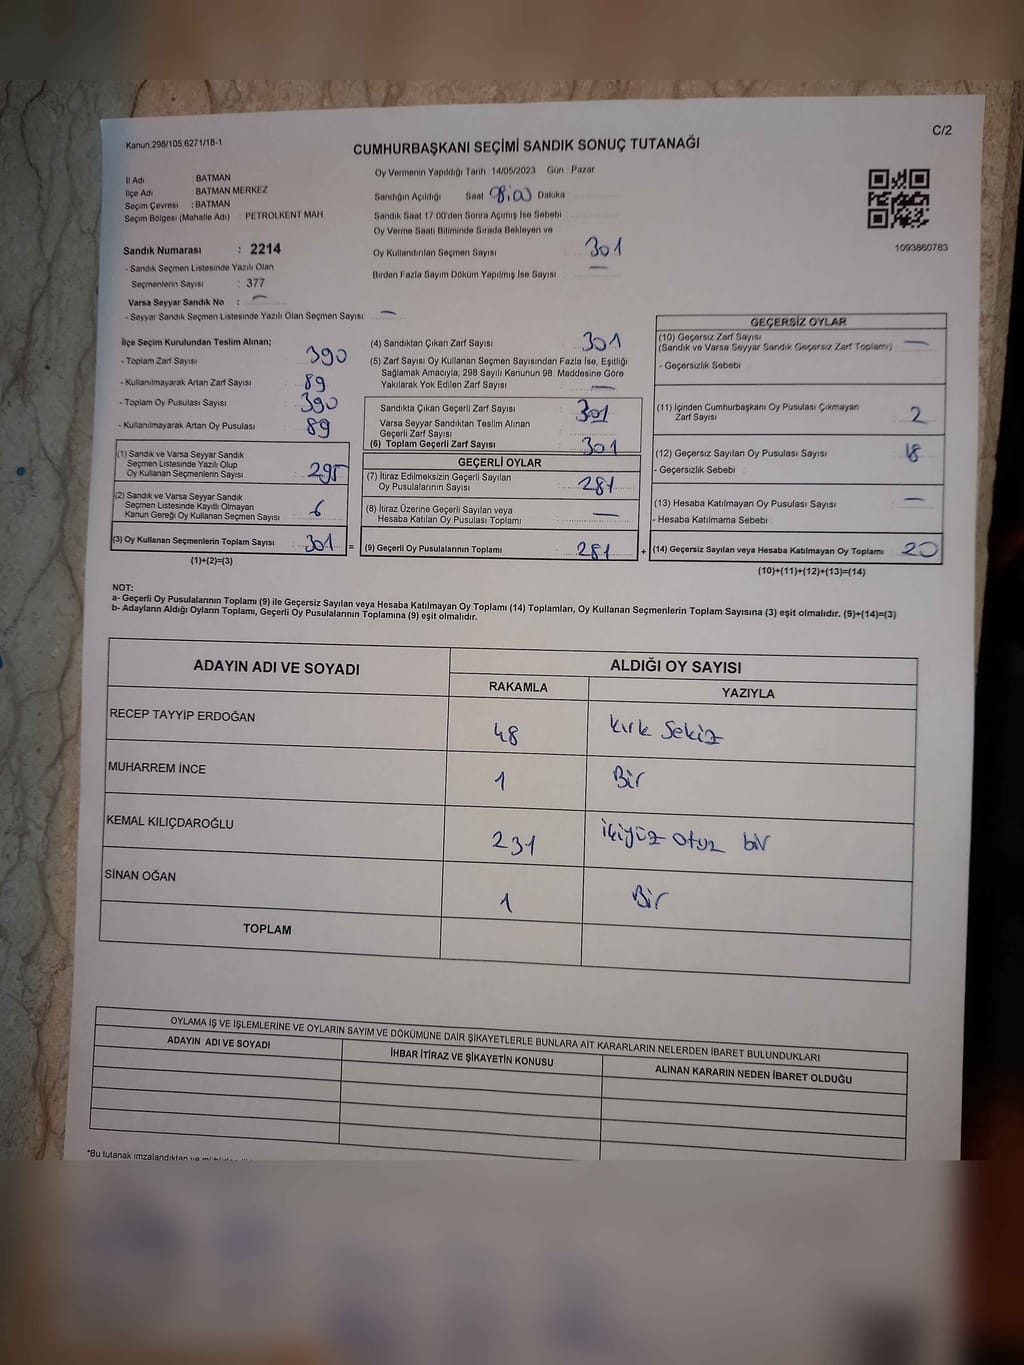 C/2
Kanun.298/105,6271/18-1
CUMHURBAŞKANI SEÇİMİ SANDIK SONUÇ TUTANAĞI
İl Adı : BATMAN
İlçe Adı : BATMAN MERKEZ
Seçim Çevresi : BATMAN
Seçim Bölgesi (Mahalle Adı) : PETROLKENT MAH
Sandık Numarası : 2214
- Sandık Seçmen Listesinde Yazılı Olan
Seçmenlerin Sayısı : 377
Varsa Seyyar Sandık No : —
- Seyyar Sandık Seçmen Listesinde Yazılı Olan Seçmen Sayısı: —
Oy Vermenin Yapıldığı Tarih 14/05/2023 Gün : Pazar
Sandığın Açıldığı Saat Dakika
Sandık Saat 17 00'den Sonra Açımış İse Sebebi
Oy Verme Saati Bitiminde Sırada Bekleyen ve
Oy Kullandırılan Seçmen Sayısı 301
Birden Fazla Sayım Döküm Yapılmış İse Sayısı —
1093860783
İlçe Seçim Kurulundan Teslim Alınan;
- Toplam Zarf Sayısı 390
- Kullanılmayarak Artan Zarf Sayısı 89
- Toplam Oy Pusulası Sayısı 390
- Kullanılmayarak Artan Oy Pusulası 89
(1) Sandık ve Varsa Seyyar Sandık
Seçmen Listesinde Yazılı Olup
Oy Kullanan Seçmenlerin Sayısı 295
(2) Sandık ve Varsa Seyyar Sandık
Seçmen Listesinde Kayıtlı Olmayan
Kanun Gereği Oy Kullanan Seçmen Sayısı 6
(3) Oy Kullanan Seçmenlerin Toplam Sayısı 301 =
(1)+(2)=(3)
(4) Sandıktan Çıkan Zarf Sayısı 301
(5) Zarf Sayısı Oy Kullanan Seçmen Sayısından Fazla İse, Eşitliği
Sağlamak Amacıyla, 298 Sayılı Kanunun 98. Maddesine Göre
Yakılarak Yok Edilen Zarf Sayısı —
Sandıkta Çıkan Geçerli Zarf Sayısı 301
Varsa Seyyar Sandıktan Teslim Alınan
Geçerli Zarf Sayısı
(6) Toplam Geçerli Zarf Sayısı 301
GEÇERLİ OYLAR
(7) İtiraz Edilmeksizin Geçerli Sayılan
Oy Pusulalarının Sayısı 281
(8) İtiraz Üzerine Geçerli Sayılan veya
Hesaba Katılan Oy Pusulası Toplamı —
(9) Geçerli Oy Pusulalarının Toplamı 281 +
GEÇERSİZ OYLAR
(10) Geçersiz Zarf Sayısı
(Sandık ve Varsa Seyyar Sandık Geçersiz Zarf Toplamı) —
- Geçersizlik Sebebi
(11) İçinden Cumhurbaşkanı Oy Pusulası Çıkmayan
Zarf Sayısı 2
(12) Geçersiz Sayılan Oy Pusulası Sayısı 18
- Geçersizlik Sebebi
(13) Hesaba Katılmayan Oy Pusulası Sayısı —
- Hesaba Katılmama Sebebi
(14) Geçersiz Sayılan veya Hesaba Katılmayan Oy Toplamı 20
(10)+(11)+(12)+(13)=(14)
NOT:
a- Geçerli Oy Pusulalarının Toplamı (9) ile Geçersiz Sayılan veya Hesaba Katılmayan Oy Toplamı (14) Toplamları, Oy Kullanan Seçmenlerin Toplam Sayısına (3) eşit olmalıdır. (9)+(14)=(3)
b- Adayların Aldığı Oyların Toplamı, Geçerli Oy Pusulalarının Toplamına (9) eşit olmalıdır.
ADAYIN ADI VE SOYADI ALDIĞI OY SAYISI
RAKAMLA YAZIYLA
RECEP TAYYİP ERDOĞAN 48 kırk Sekiz
MUHARREM İNCE 1 Bir
KEMAL KILIÇDAROĞLU 231 ikiyüz otuz bir
SİNAN OĞAN 1 Bir
TOPLAM
OYLAMA İŞ VE İŞLEMLERİNE VE OYLARIN SAYIM VE DÖKÜMÜNE DAİR ŞİKAYETLERLE BUNLARA AİT KARARLARIN NELERDEN İBARET BULUNDUKLARI
ADAYIN ADI VE SOYADI İHBAR İTİRAZ VE ŞİKAYETİN KONUSU ALINAN KARARIN NEDEN İBARET OLDUĞU
*Bu tutanak imzalandıktan ve